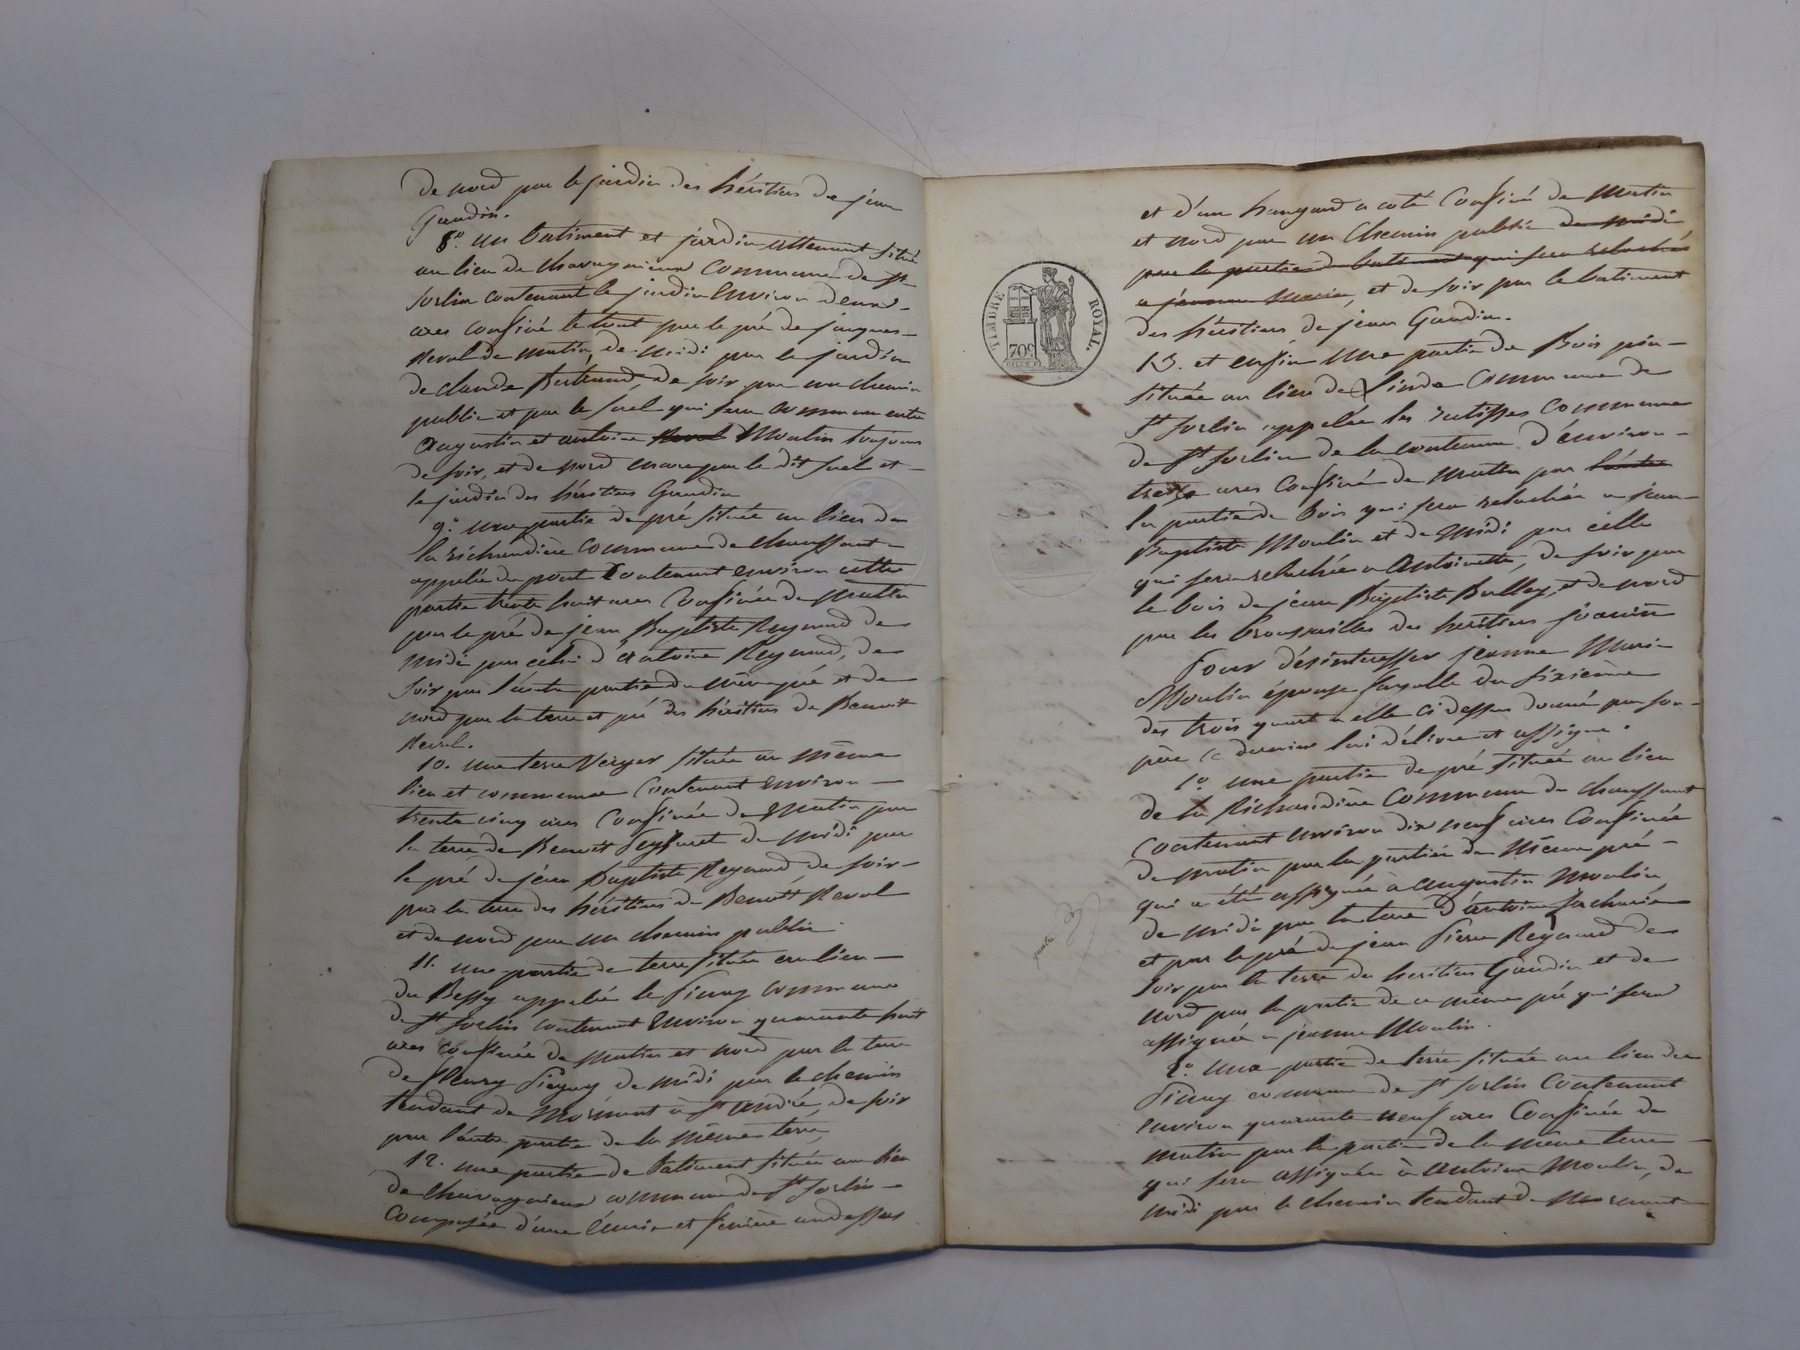 de nord par le jardin des héritiers de jean
Gaudin.
8.° un batiment et jardin attenant situé
au lieu de chavagnieux commune de St
Sorlin contenant le jardin environ deux
ares confiné le tout par le pré de jacques
Reval de matin, de midi par le jardin
de claude Bertrand, de soir par un chemin
public et par le suel qui sera commun entre
Augustin et antoine Reval Moulin toujours
de soir, et de nord encore par le dit suel et
le jardin des héritiers Gaudin
9.° une partie de pré située au lieu de
la richaudière commune de chaussant
appelée du pont Contenant environ cette
partie trente huit ares Confinée de matin
par le pré de jean Baptiste Reynard de
midi par celui d'Antoine Reynard, de
soir par l'autre partie du même pré et de
nord par la terre et pré des héritiers de Benoit
Reval.
10. une terre Verger située au même
lieu et commune Contenant environ
trente cinq ares Confinée de matin par
la terre de Benoit de midi par
le pré de jean Baptiste Reynard de soir
par la terre des héritiers de Benoit Reval
et de nord par un chemin public
11. une partie de terre située au lieu
du Bessy appelée le commune
de St Sorlin contenant environ quarante huit
ares confinée de matin et nord par la terre
de fleury de midi par le chemin
tendant de Mornant à St André, de soir
par l'autre partie de la même terre,
12. une partie de batiment située au lieu
de chavagnieux commune de St Sorlin
Composée d'une Ecurie et fenière audessus
et d'un hangard a coté Confiné de Matin
et nord par un Chemin public de midi
par la partie de batiment qui sera relachée
a jeanne Marie, et de soir par le batiment
des héritiers de jean Gaudin.
13. et enfin une partie de Bois pin
située au lieu de Commune de
St Sorlin appelée les Commune
de St Sorlin de la contenue d'environ
treize ares Confiné de Matin par l'autre
la partie de bois qui sera relachée a jean
Baptiste Moulin et de Midi par celle
qui sera relachée a Antoinette, de soir par
le bois de jean Baptiste et de nord
par les brousailles des heritiers
Pour désinteresser jeanne Marie
Moulin épouse du sixième
des trois quart a elle ci dessus donné par son
père ce dernier lui délivre et assigne.
1.° une partie de pré située au lieu
de la Richaudière Commune de chaussant
Contenant environ dix neuf ares Confinée
de matin par la partie du même pré
qui a été assignée à augustin Moulin
de midi par la terre d'antoine
et par le pré de jean Pierre Reynard de
soir par la terre des heritiers Gaudin et de
nord par la partie de ce même pré qui sera
assignée a jeanne Moulin.
2.° une partie de terre située au lieu de
commune de St Sorlin Contenant
environ quarante neuf ares Confinée de
matin par la partie de la même terre
qui sera assignée à antoine Moulin, de
midi par le chemin tendant de Mornant
TIMBRE ROYAL.
70c